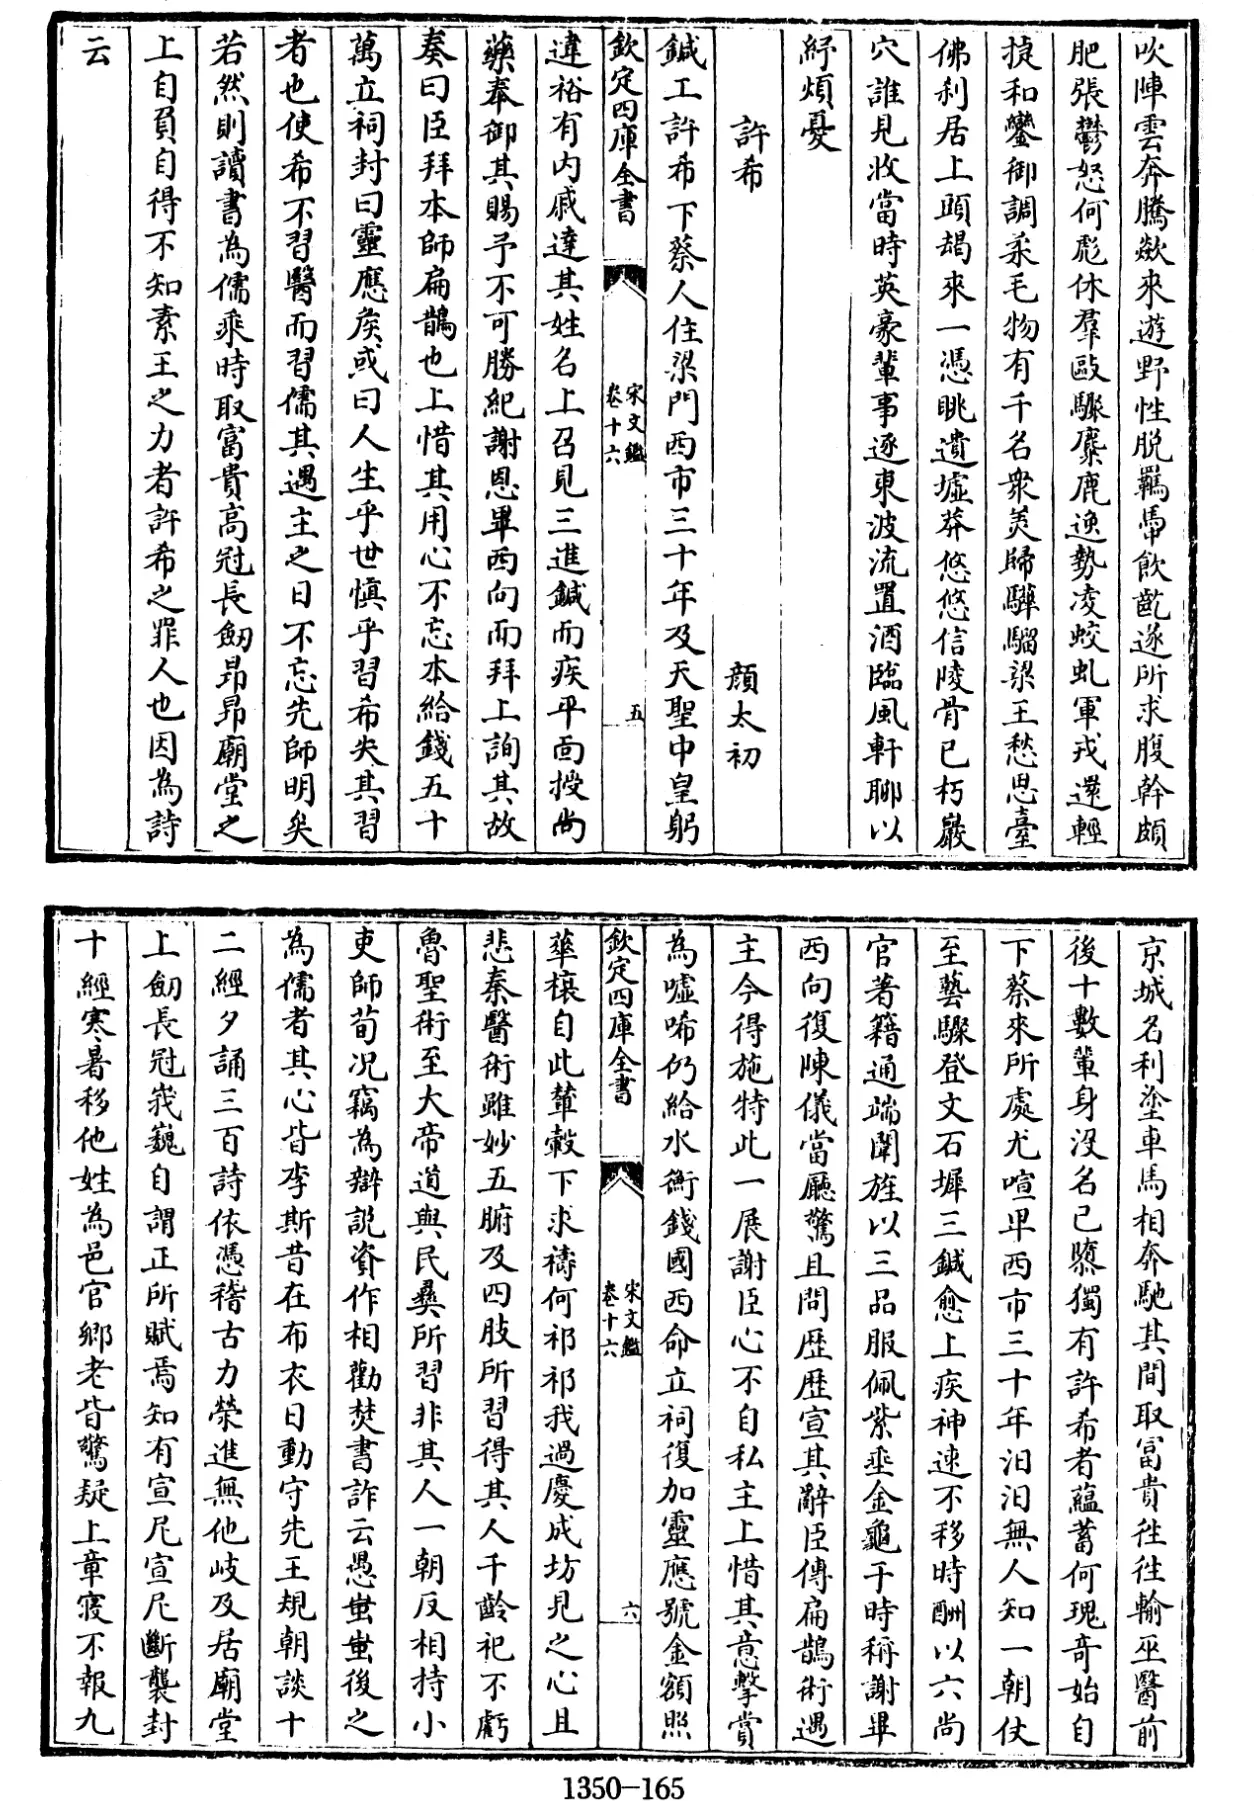 吹陣雲奔騰歘來遊野性脱羈馽飲齕遂所求腹幹頗
肥張鬱怒何彪休羣毆驟麋鹿逸勢凌蛟虬軍戎選輕
揵和鑾御調柔毛物有千名衆美歸驊騮梁王愁思臺
佛刹居上頭朅來一憑眺遺墟莽悠悠信陵骨已朽巖
穴誰見收當時英豪輩事逐東波流置酒臨風軒聊以
紓煩憂
許希　　顔太初
鍼工許希下蔡人住梁門西市三十年及天聖中皇躬
欽定四庫全書　宋文鑑卷十六　五
違裕有内戚達其姓名上召見三進鍼而疾平面授尚
藥奉御其賜予不可勝紀謝恩畢西向而拜上詢其故
奏曰臣拜本師扁鵲也上惜其用心不忘本給錢五十
萬立祠封曰靈應侯或曰人生乎世慎乎習希失其習
者也使希不習醫而習儒其遇主之日不忘先師明矣
若然則讀書為儒乘時取富貴高冠長劒昂昂廟堂之
上自負自得不知素王之力者許希之罪人也因為詩
云
京城名利塗車馬相奔馳其間取富貴徃徃輸巫醫前
後十數輩身沒名已隳獨有許希者蘊蓄何瑰奇始自
下蔡來所處尤喧卑西市三十年汩汩無人知一朝仗
至藝驟登文石墀三鍼愈上疾神速不移時酬以六尚
官著籍通端闈旌以三品服佩紫垂金龜于時稱謝畢
西向復陳儀當廳驚且問歴歴宣其辭臣傳扁鵲術遇
主今得施特此一展謝臣心不自私主上惜其意擊賞
為嘘唏仍給水衡錢國西命立祠復加靈應號金額照
欽定四庫全書　宋文鑑卷十六　六
華榱自此輦轂下求禱何祁祁我過慶成坊見之心且
悲秦醫術雖妙五腑及四肢所習得其人千齡祀不虧
魯聖術至大帝道與民彝所習非其人一朝反相持小
吏師荀況竊為辯説資作相勸焚書詐云愚蚩蚩後之
為儒者其心皆李斯昔在布衣日動守先王規朝談十
二經夕誦三百詩依憑稽古力榮進無他岐及居廟堂
上劒長冠峩巍自謂正所賦焉知有宣尼宣尼斷襲封
十經寒暑移他姓為邑官鄉老皆驚疑上章寢不報九
1350-165